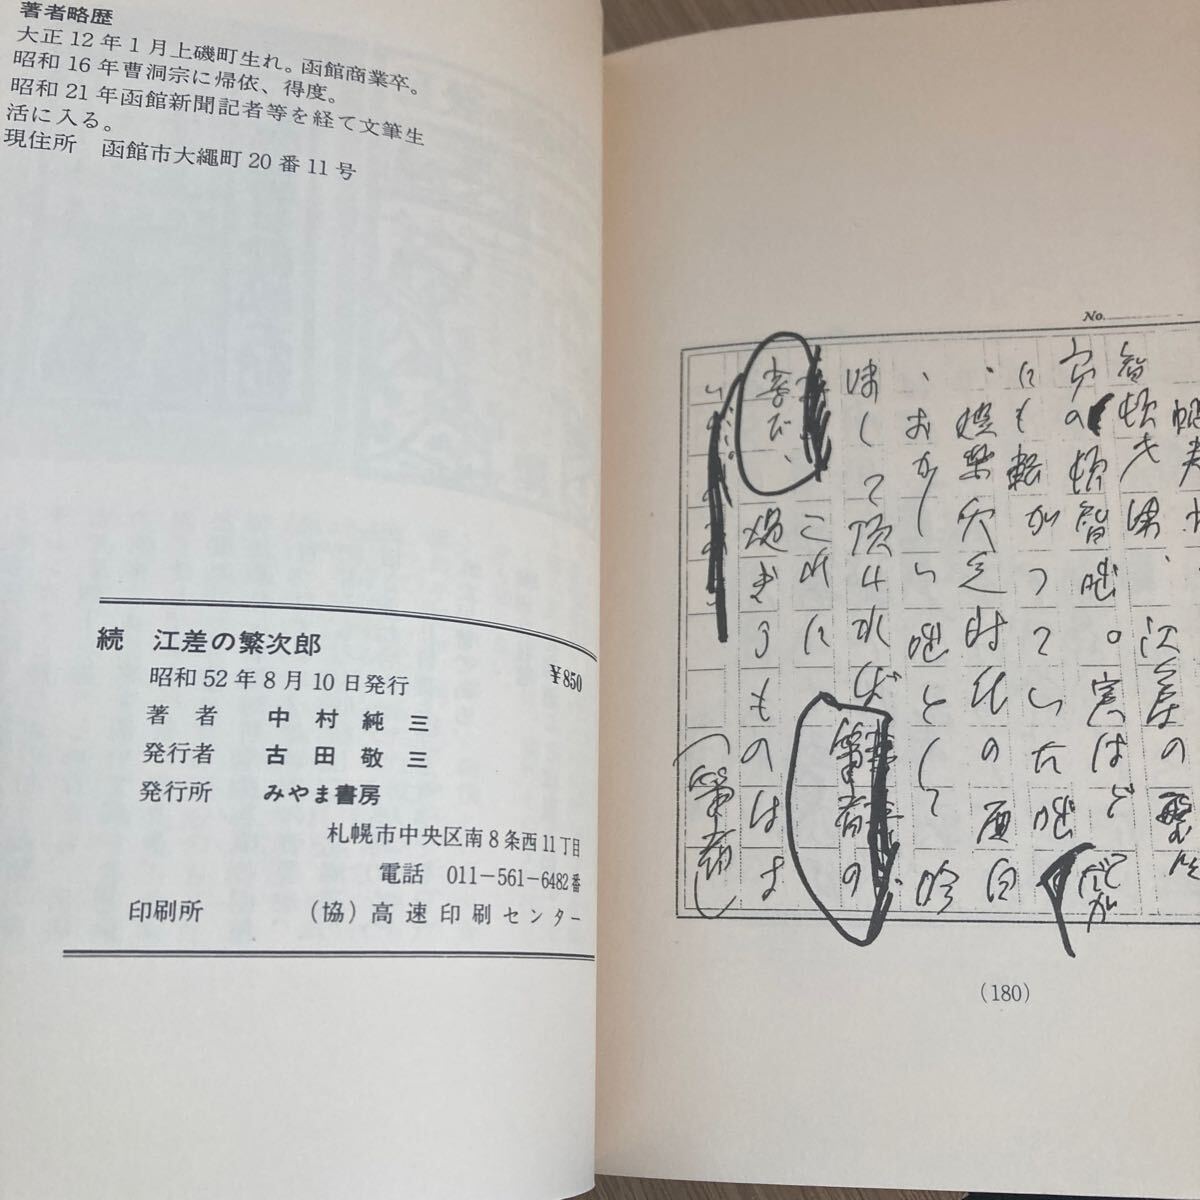 著者略歴
大正12年1月上磯町生れ。函館商業卒。
昭和16年曹洞宗に帰依、得度。
昭和21年函館新聞記者等を経て文筆生
活に入る。
現住所　函館市大縄町20番11号
続　江差の繁次郎
¥850
昭和52年8月10日発行
著者　中村純三
発行者　古田敬三
発行所　みやま書房
札幌市中央区南8条西11丁目
電話　011-561-6482番
印刷所　(協)高速印刷センター
No.
智頓才
の頓智咄。実はど
にも転がっていた咄
、娯楽欠乏時代の面白
、おかしい咄として吟
味して頂ければ筆者の
これに
幸だ、過ぎるものはな
(筆者)
(180)